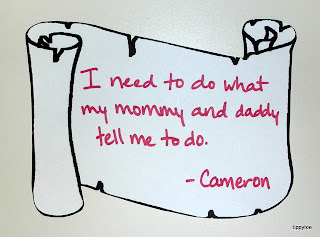 I need to do what
my mommy and daddy
tell me to do.
- Cameron
tippytoe